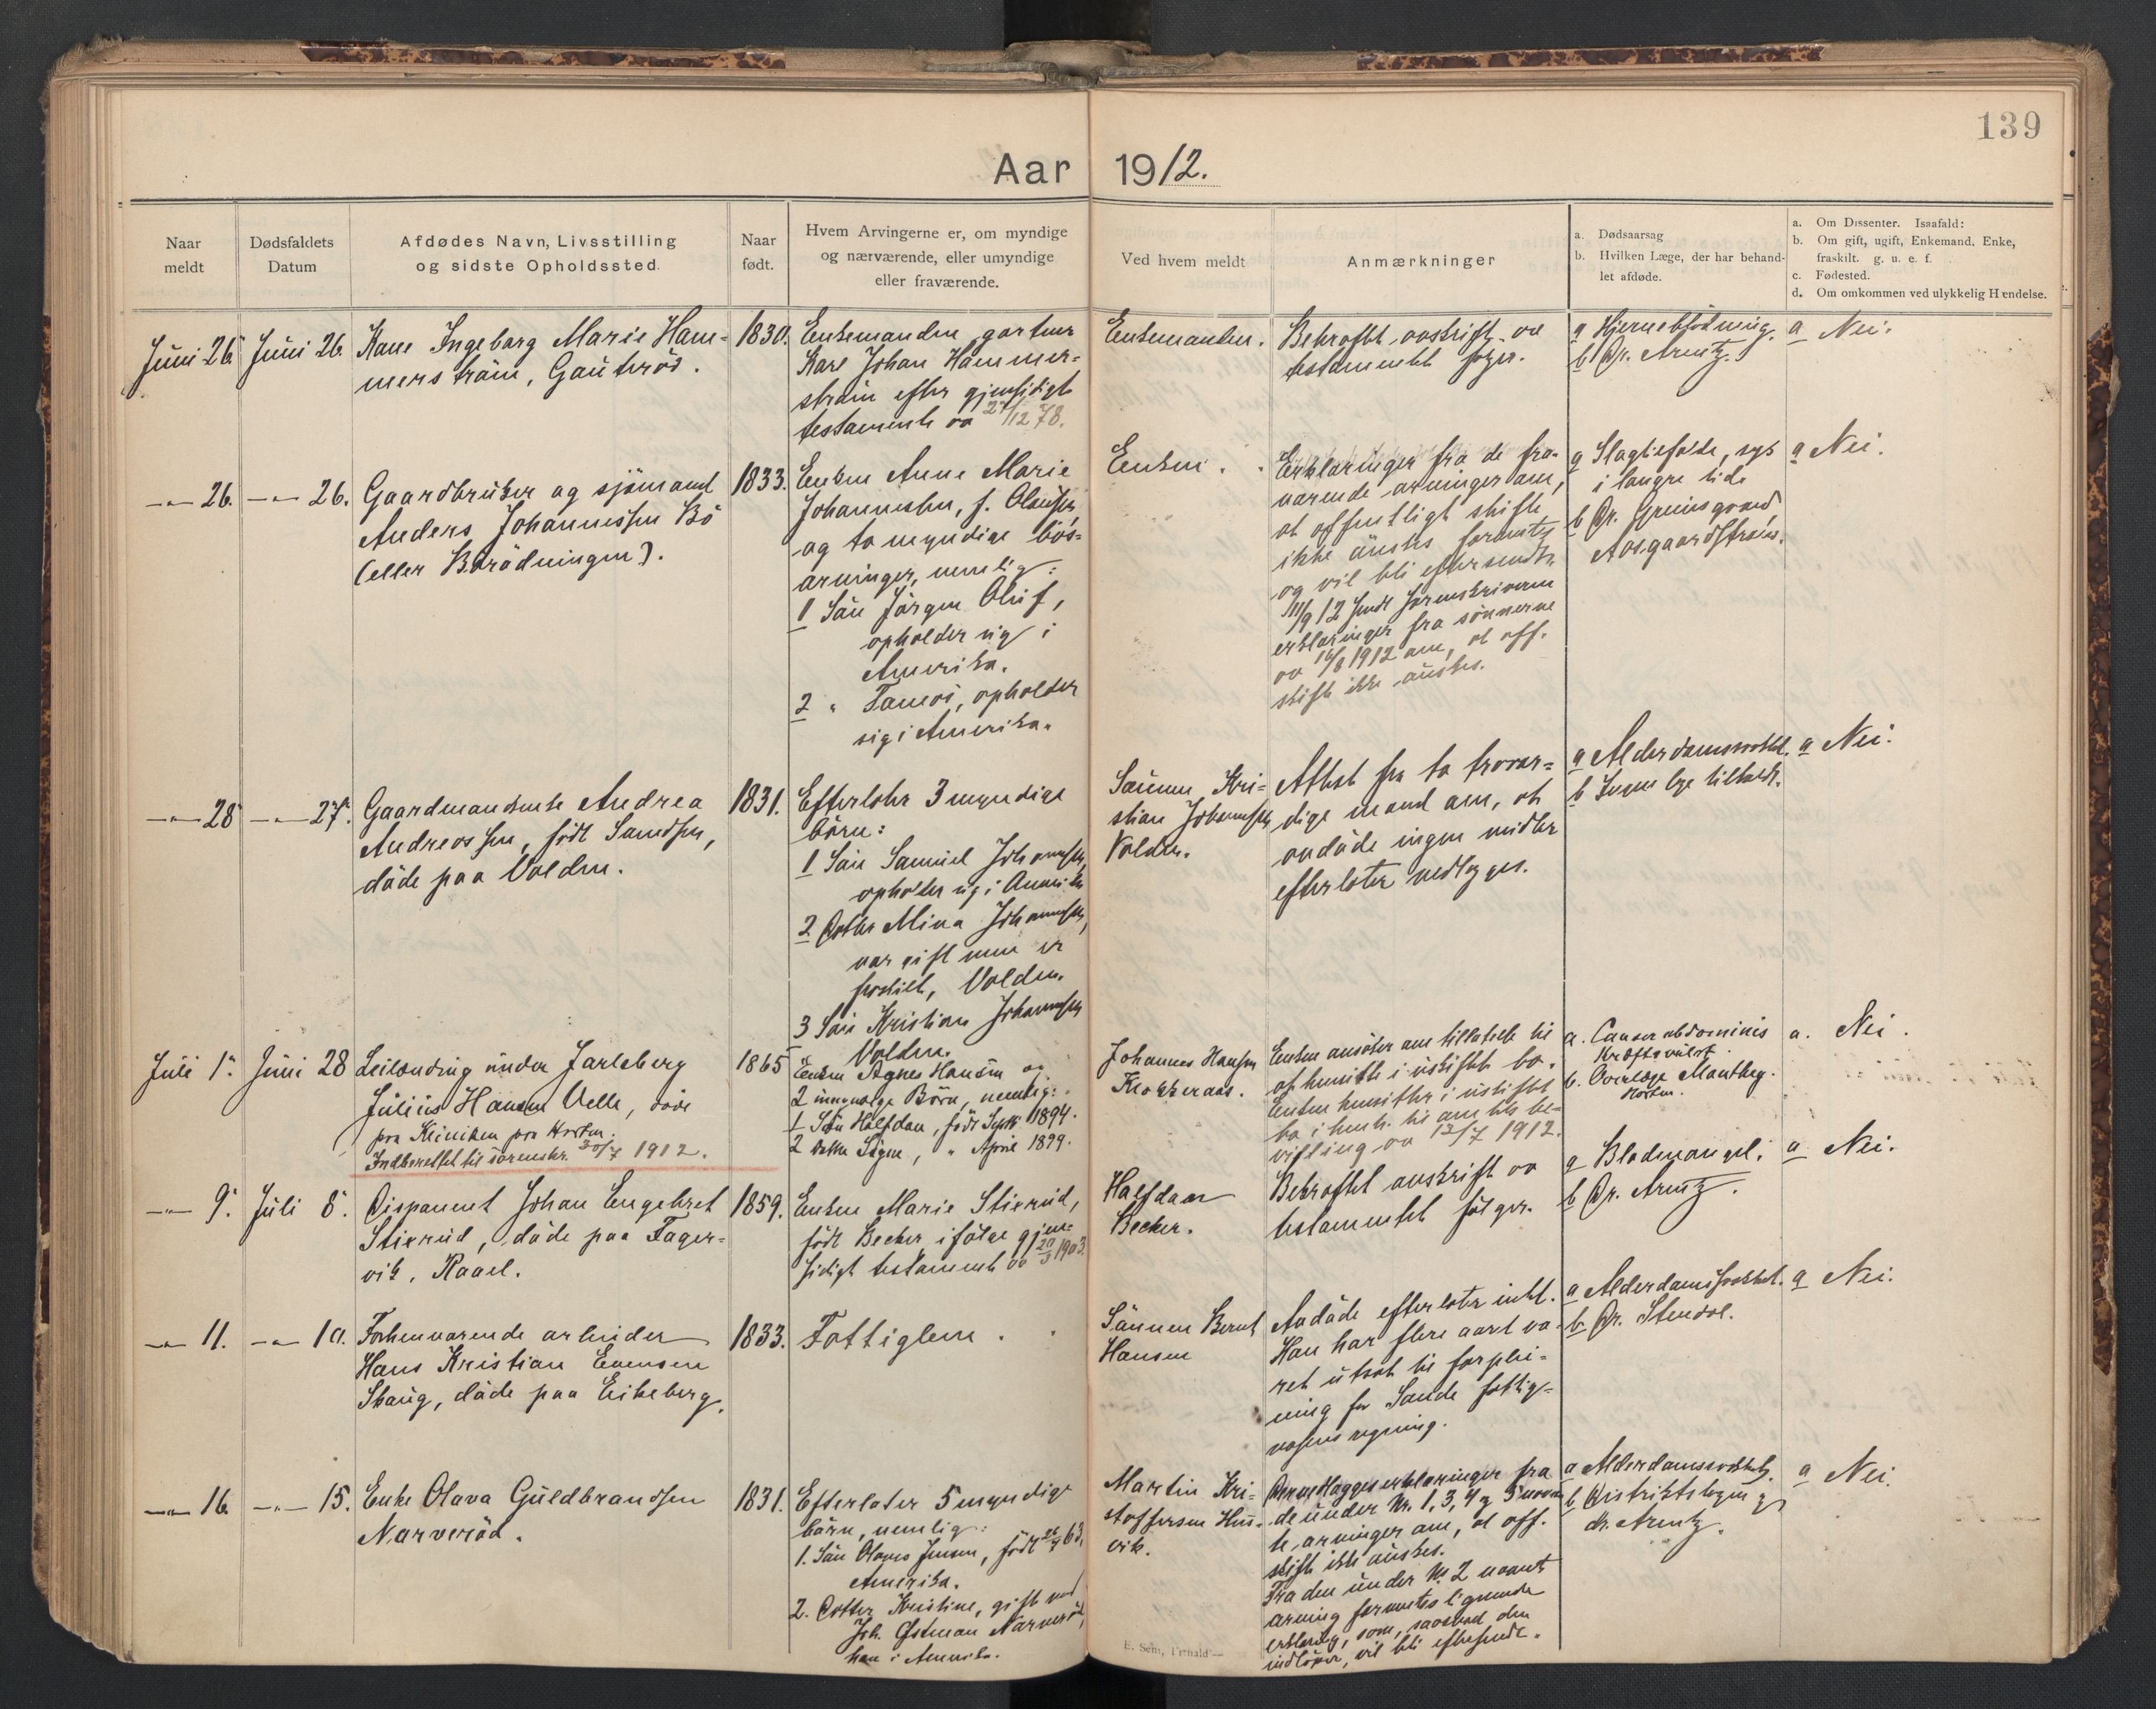 139
Aar 1912.
Naar meldt
Dødsfaldets Datum
Afdødes Navn, Livsstilling og sidste Opholdssted.
Naar født.
Hvem Arvingerne er, om myndige og nærværende, eller umyndige eller fraværende.
Ved hvem meldt
Anmærkninger
a. Dødsaarsag
b. Hvilken Læge, der har behandlet afdøde.
a. Om Dissenter. Isaafald:
b. Om gift, ugift, Enkemand. Enke, fraskilt. g. u. e. f.
c. Fødested.
d. Om omkommen ved ulykkelig Hændelse.
Juni 26. Juni 26.
Kone Ingeborg Marie Ham-
merström, Gauteröd.
1830.
Enkemanden, gartner
Karl Johan Hammer-
ström efter gjensidigt
testamente av 27/12 78.
Enkemanden.
Bekræftet avskrift av
testamentet følger.
a Hjerneblödning.
b Dr. Arentz.
a Nei.
-"- 26. -"- 26.
Gaardbruker og sjömand
Anders Johannessen Bö
(eller Börödningen).
1833.
Enken Anne Marie
Johannessen, f. Olausen,
og to myndige livs-
arvinger, nemlig:
1 Sön Jörgen Oluf,
opholder sig i
Amerika.
2 " Tomas, opholder
sig i Amerika.
Enken.
Erklæringer fra de fra-
værende arvinger om,
at offentligt skifte
ikke önskes forventes
og vil bli eftersendt.
11/9 12 sendt sorenskriveren
erklæringer fra sönnerne
av 16/8 1912 om, at off.
skifte ikke önskes.
a Slagtilfælde, syg
i længre tid.
b Dr. Grimsgaard
Aasgaardstrand.
a Nei.
-"- 28 -"- 27.
Gaardmandsenke Andrea
Andreassen, født Samdsen,
döde paa Volden.
1831.
Efterlater 3 myndige
börn:
1 Sön Samuel Johannessen,
opholder sig i Amerika
2 Datter Mina Johannessen,
var gift men er
fraskilt, Volden.
3 Sön Kristian Johannessen
Volden.
Sönnen Kri-
stian Johannessen
Volden.
Attest fra to trovær-
dige mænd om, at
avdöde ingen midler
efterlater vedlægges.
a Alderdomssvakhet.
b Ingen læge tilkaldt.
a Nei.
Juli 1. Juni 28
Leilending under Jarlsberg
Julius Hansen Velle, döde
paa Kliniken paa Horten.
Indberettet til sorenskr. 30/7 1912.
1865
Enken Agnes Hansen og
2 umyndige Börn, nemlig:
1 Sön Halfdan, født Septr 1894.
2 Datter Signe, " April 1899.
Johannes Hansen
Klokkeraas.
Enken ansöker om tillatelse til
at hensitte i uskiftet bo.
Enken hensitter i uskiftet
bo i henh. til amtets be-
villing av 12/7 1912.
a. Cancer abdominis
Kræftsvulst
b. Overlæge Manthey.
Horten.
a. Nei.
-"- 9. Juli 8.
Disponent Johan Engebret
Stixrud, döde paa Fager-
vik, Raael.
1859.
Enken Marie Stixrud,
född Becker, ifölge gjen-
sidigt testamente av 20/3 1903.
Halfdan
Becker.
Bekræftet avskrift av
testamentet fölger.
a Blodmangel.
b Dr. Arentz.
a Nei.
-"- 11. -"- 10.
Forhenværende arbeider
Hans Kristian Evensen
Skaug, döde paa Eikeberg.
1833.
Fattiglem.
Sönnen Bernt
Hansen
Avdöde efterlater intet.
Han har flere aar va-
ret utsat til forplei-
ning for Sande fattig-
væsens regning.
a Alderdomssvakhet.
b Dr. Stendal.
a Nei.
-"- 16. -"- 15.
Enke Olava Guldbrandsen
Narveröd.
1831.
Efterlater 5 myndige
börn, nemlig:
1. Sön Olaves Jensen, född 26/4 63,
Amerika.
2. Datter Kristine, gift med
Joh. Östman Narveröd,
han i Amerika.
Martin Kri-
stoffersen Hus-
vik.
erklæringer fra
de under Nr. 1, 3, 4 og 5 nævn-
te arvinger om, at off.
skifte ikke önskes.
Fra den under Nr 2 nævnte
arving forventes lignende
erklæring, som, saasnart den
indlöper, vil bli eftersendt.
a Alderdomssvakhet.
b Distriktslægen
dr. Arentz.
a Nei.
E. Sem, Fr.hald —